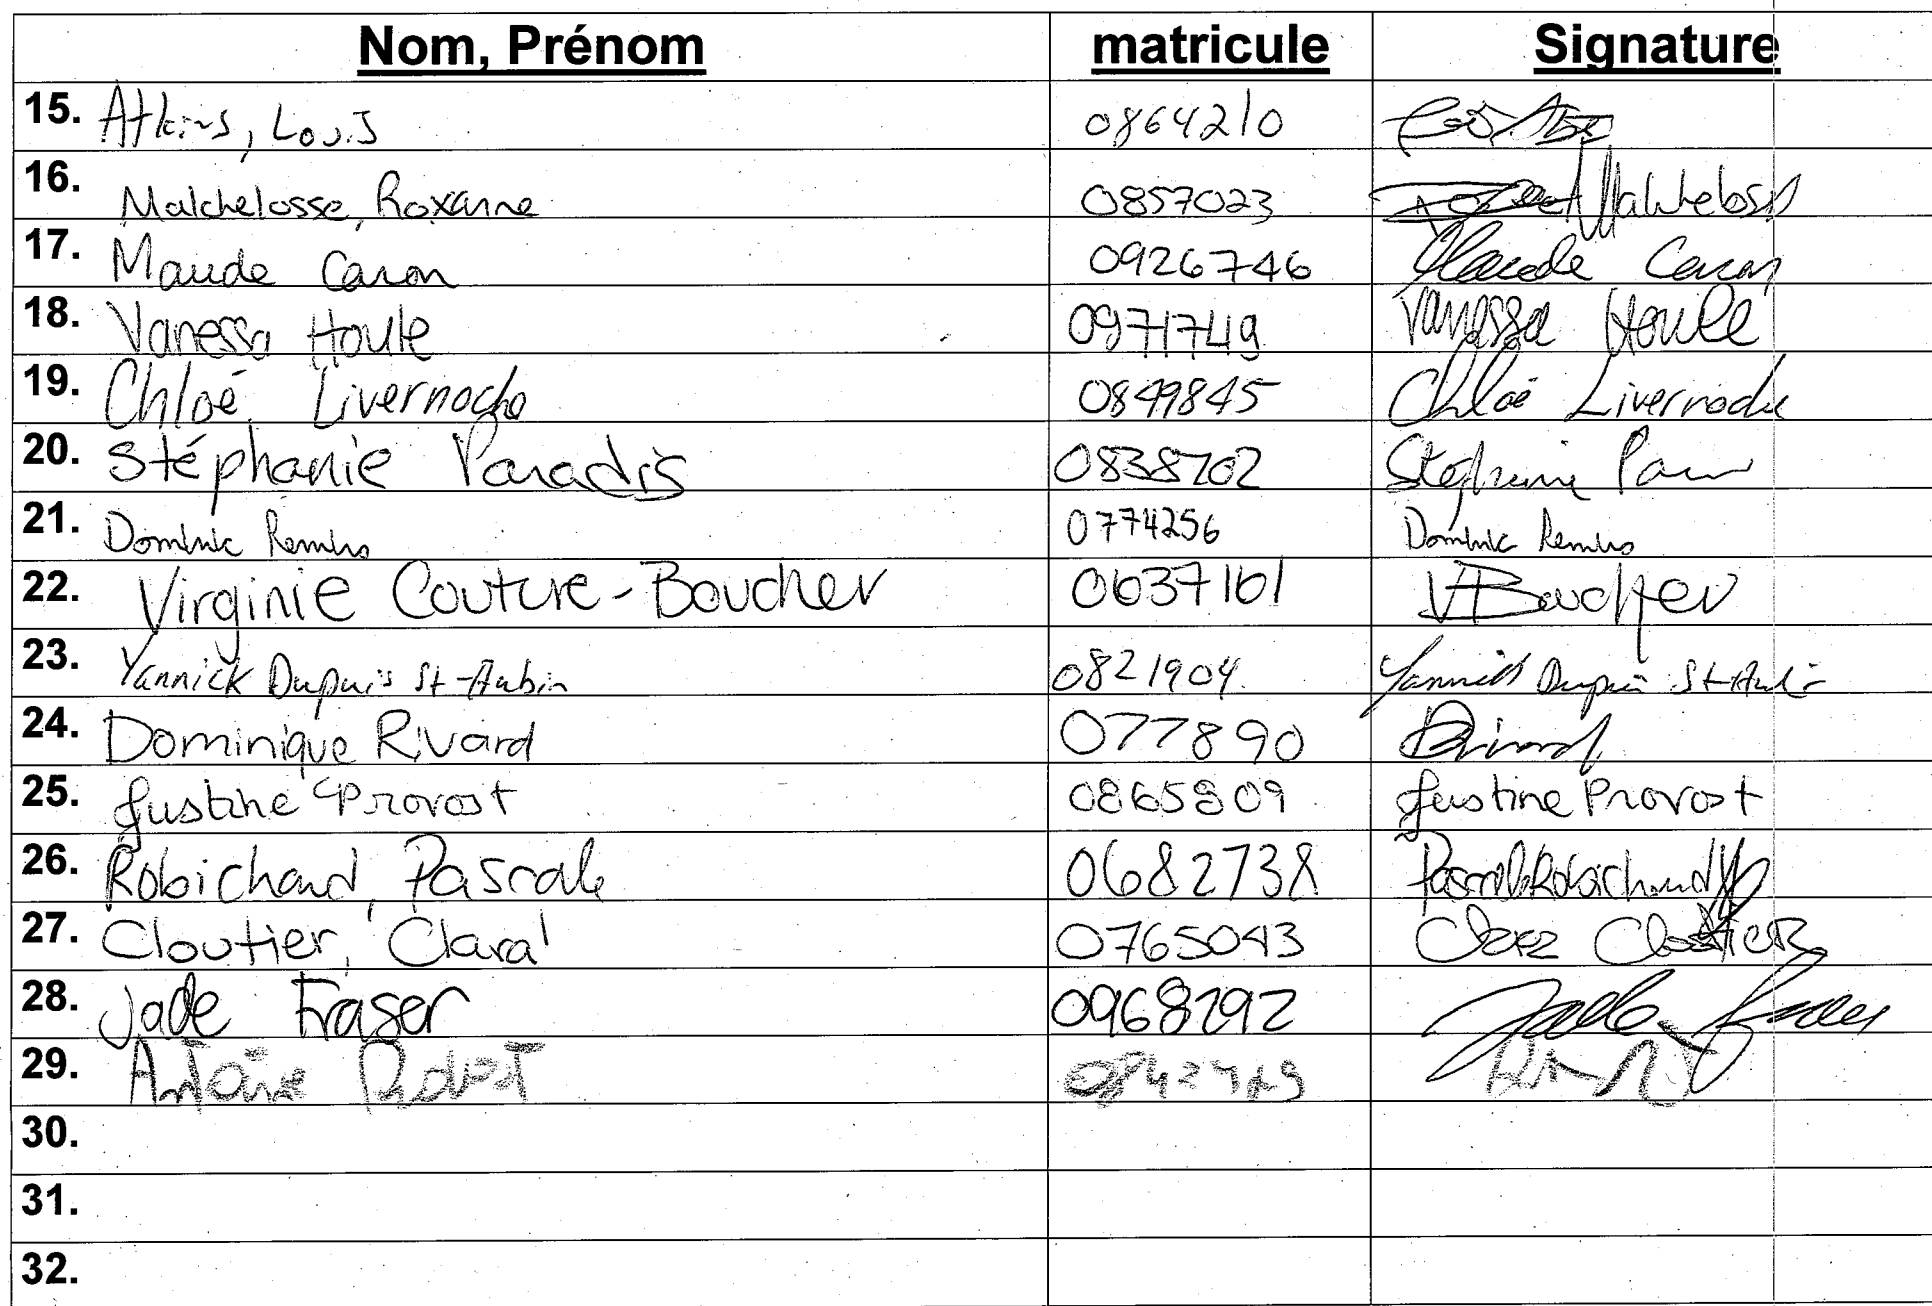 Nom, Prénom matricule Signature
15. Atkins, Louis 0864210
16. Malchelosse, Roxanne 0857023 Malchelosse
17. Maude Caron 0926746 Maude Caron
18. Vanessa Houle 0971749 Vanessa Houle
19. Chloé Livernoche 0849845 Chloé Livernoche
20. Stéphanie Paradis 0838702 Stéphanie
21. Dominic 0774256 Dominic
22. Virginie Couture-Boucher 0637161 VBoucher
23. Yannick Dupuis St-Aubin 0821904 Yannick Dupuis St-Aubin
24. Dominique Rivard 077890 DRivard
25. Justine Provost 0865809 Justine Provost
26. Robichaud, Pascale 0682738 Pascale Robichaud
27. Cloutier, Clara 0765043 Clara Cloutier
28. Jade Fraser 0968292 Jade Fraser
29. Antoine
30.
31.
32.